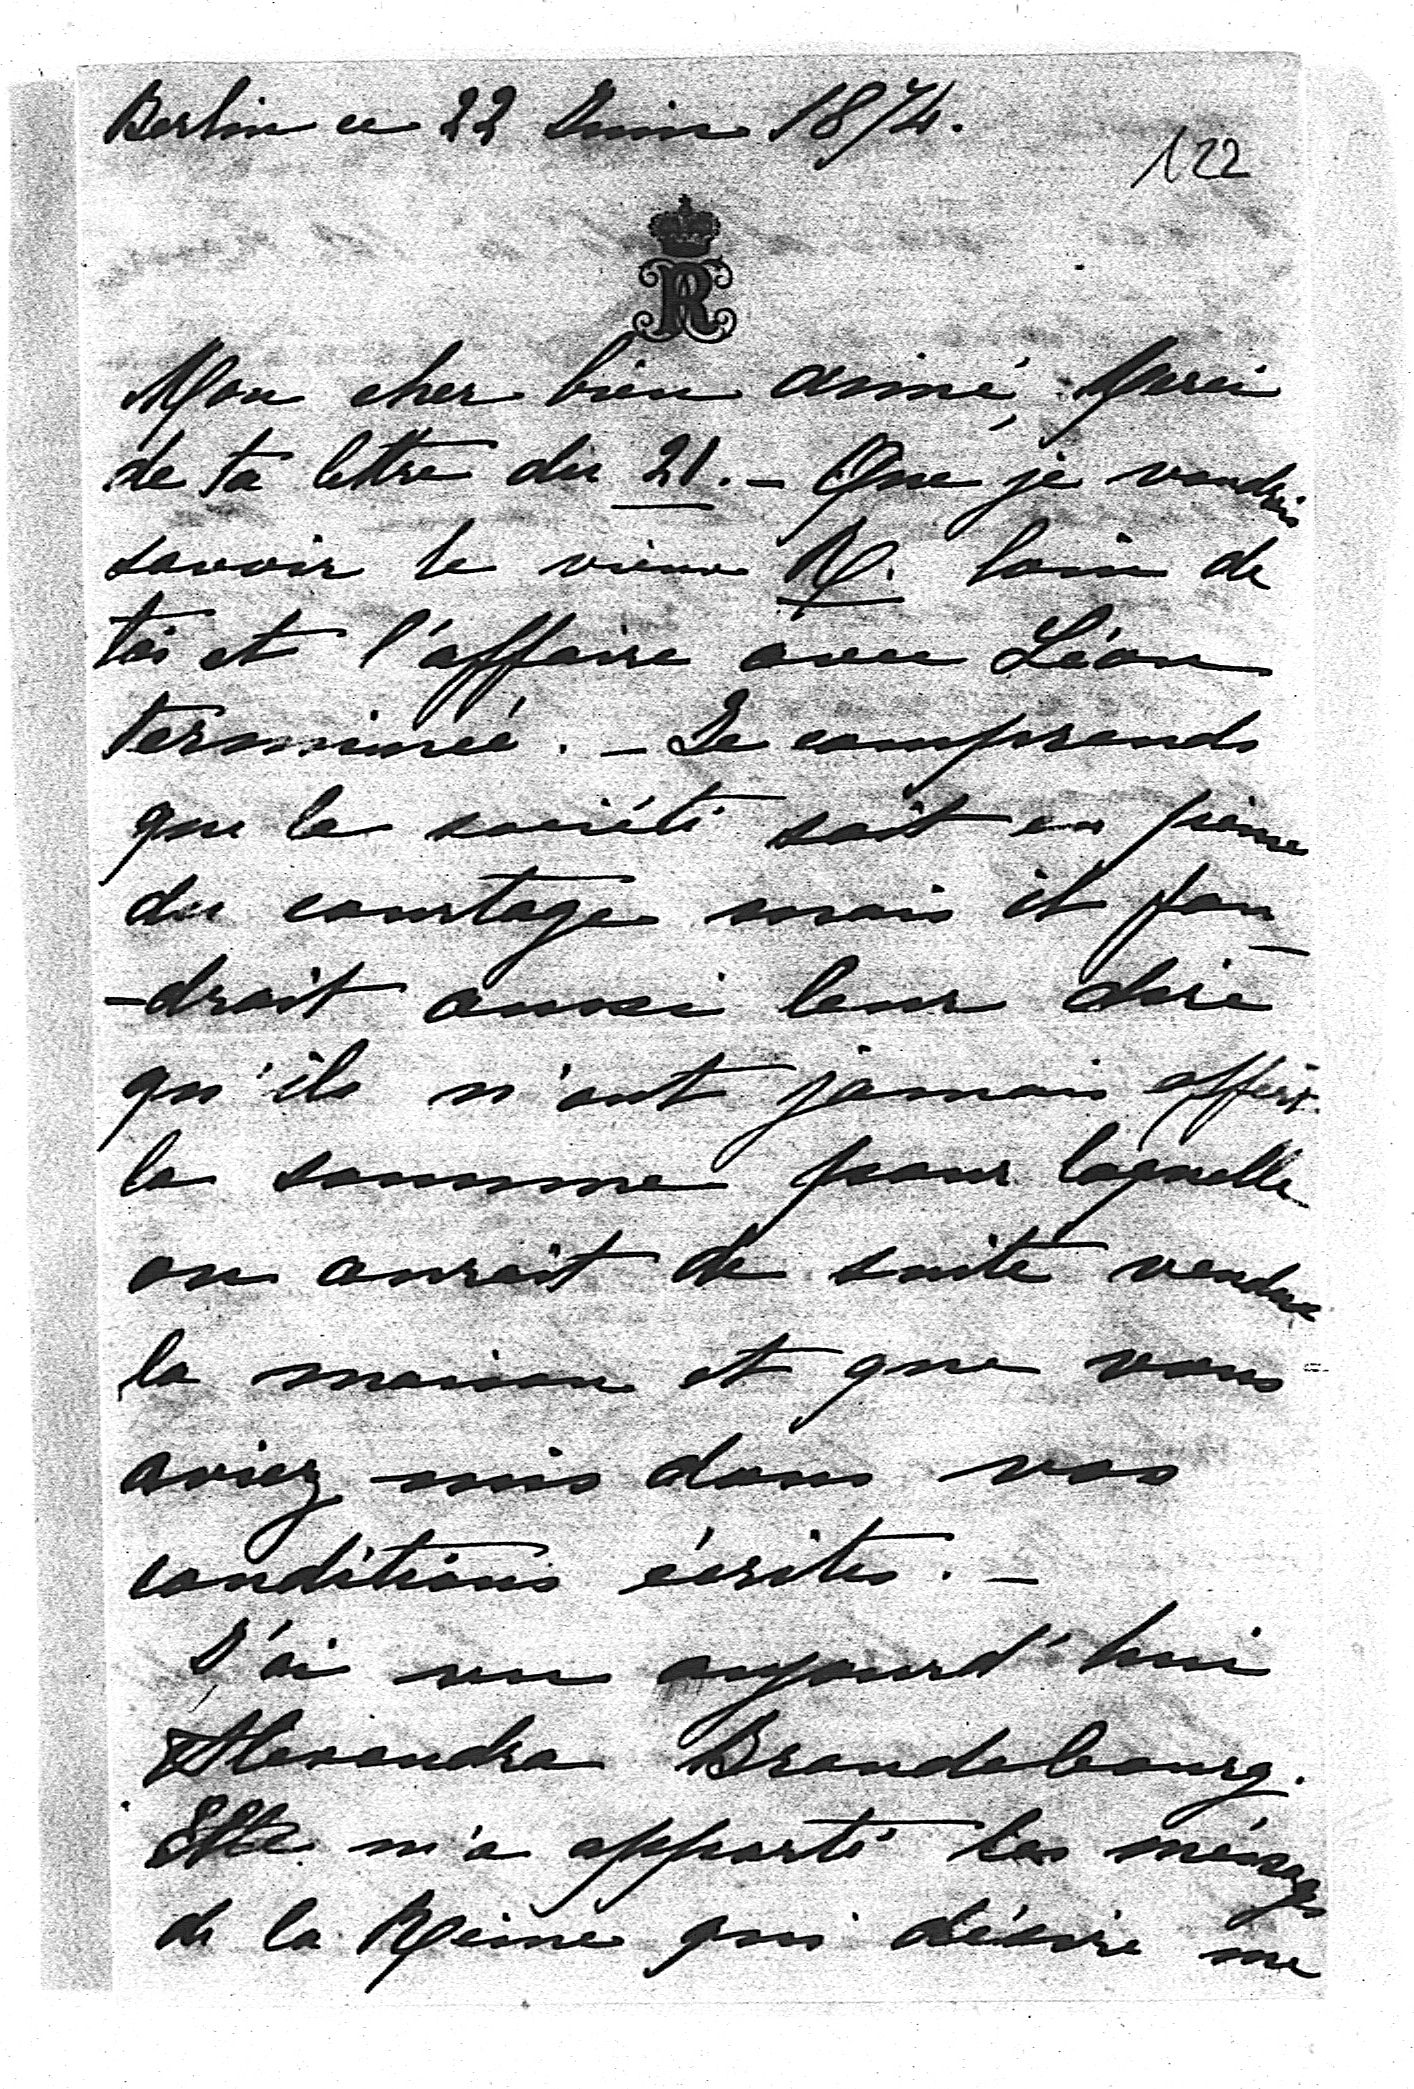 Berlin ce 22 Juin 1874.
122
R
Mon cher bien aimé, Merci
de ta lettre du 21. – Que je voudrais
savoir le vieux R. loin de
toi et l'affaire avec Léon
terminée. – Je comprends
que la société soit en peine
du courtage mais il fau
-drait aussi leur dire
qu'ils n'ont jamais offert
la somme pour laquelle
on aurait de suite vendu
la maison et que vous
aviez mis dans vos
conditions écrites. –
J'ai vu aujourd'hui
Alexandra Brandebourg.
Elle m'a apporté les
de la Reine qui désire me